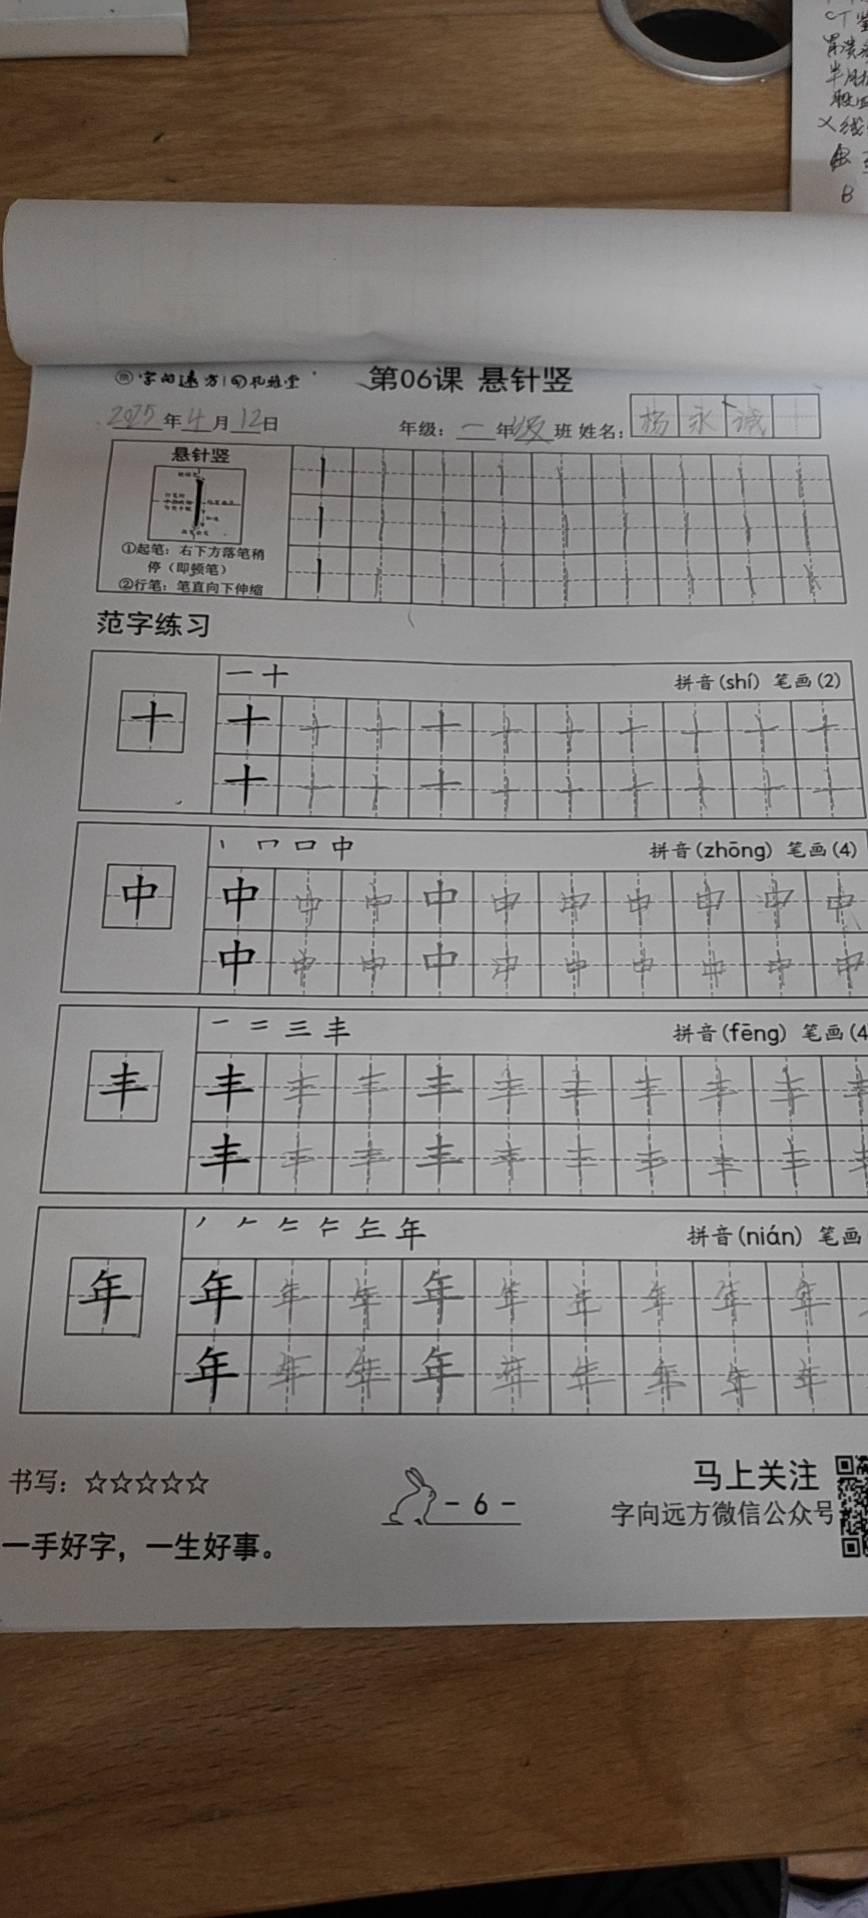 CT
字向远方
第06课 悬针竖
2025年4月12日 年级：一年级班 姓名：杨永诚
悬针竖
①起笔：右下方落笔稍
停（即顿笔）
②行笔：笔直向下伸缩
范字练习
一 十 拼音(shí) 笔画(2)
十 十 十 十 十 十 十 十 十 十 十
十 十 十 十 十 十 十 十 十 十
丨 口 中 拼音(zhōng) 笔画(4)
中 中 中 中 中 中 中 中 中 中 中
中 中 中 中 中 中 中 中 中 中
一 二 三 丰 拼音(fēng) 笔画(4
丰 丰 丰 丰 丰 丰 丰 丰 丰 丰 丰
丰 丰 丰 丰 丰 丰 丰 丰 丰 丰
丿 𠂉 年 拼音(nián) 笔画
年 年 年 年 年 年 年 年 年 年
年 年 年 年 年 年 年 年 年
书写：☆☆☆☆☆
- 6 -
马上关注
字向远方微信公众号
一手好字，一生好事。